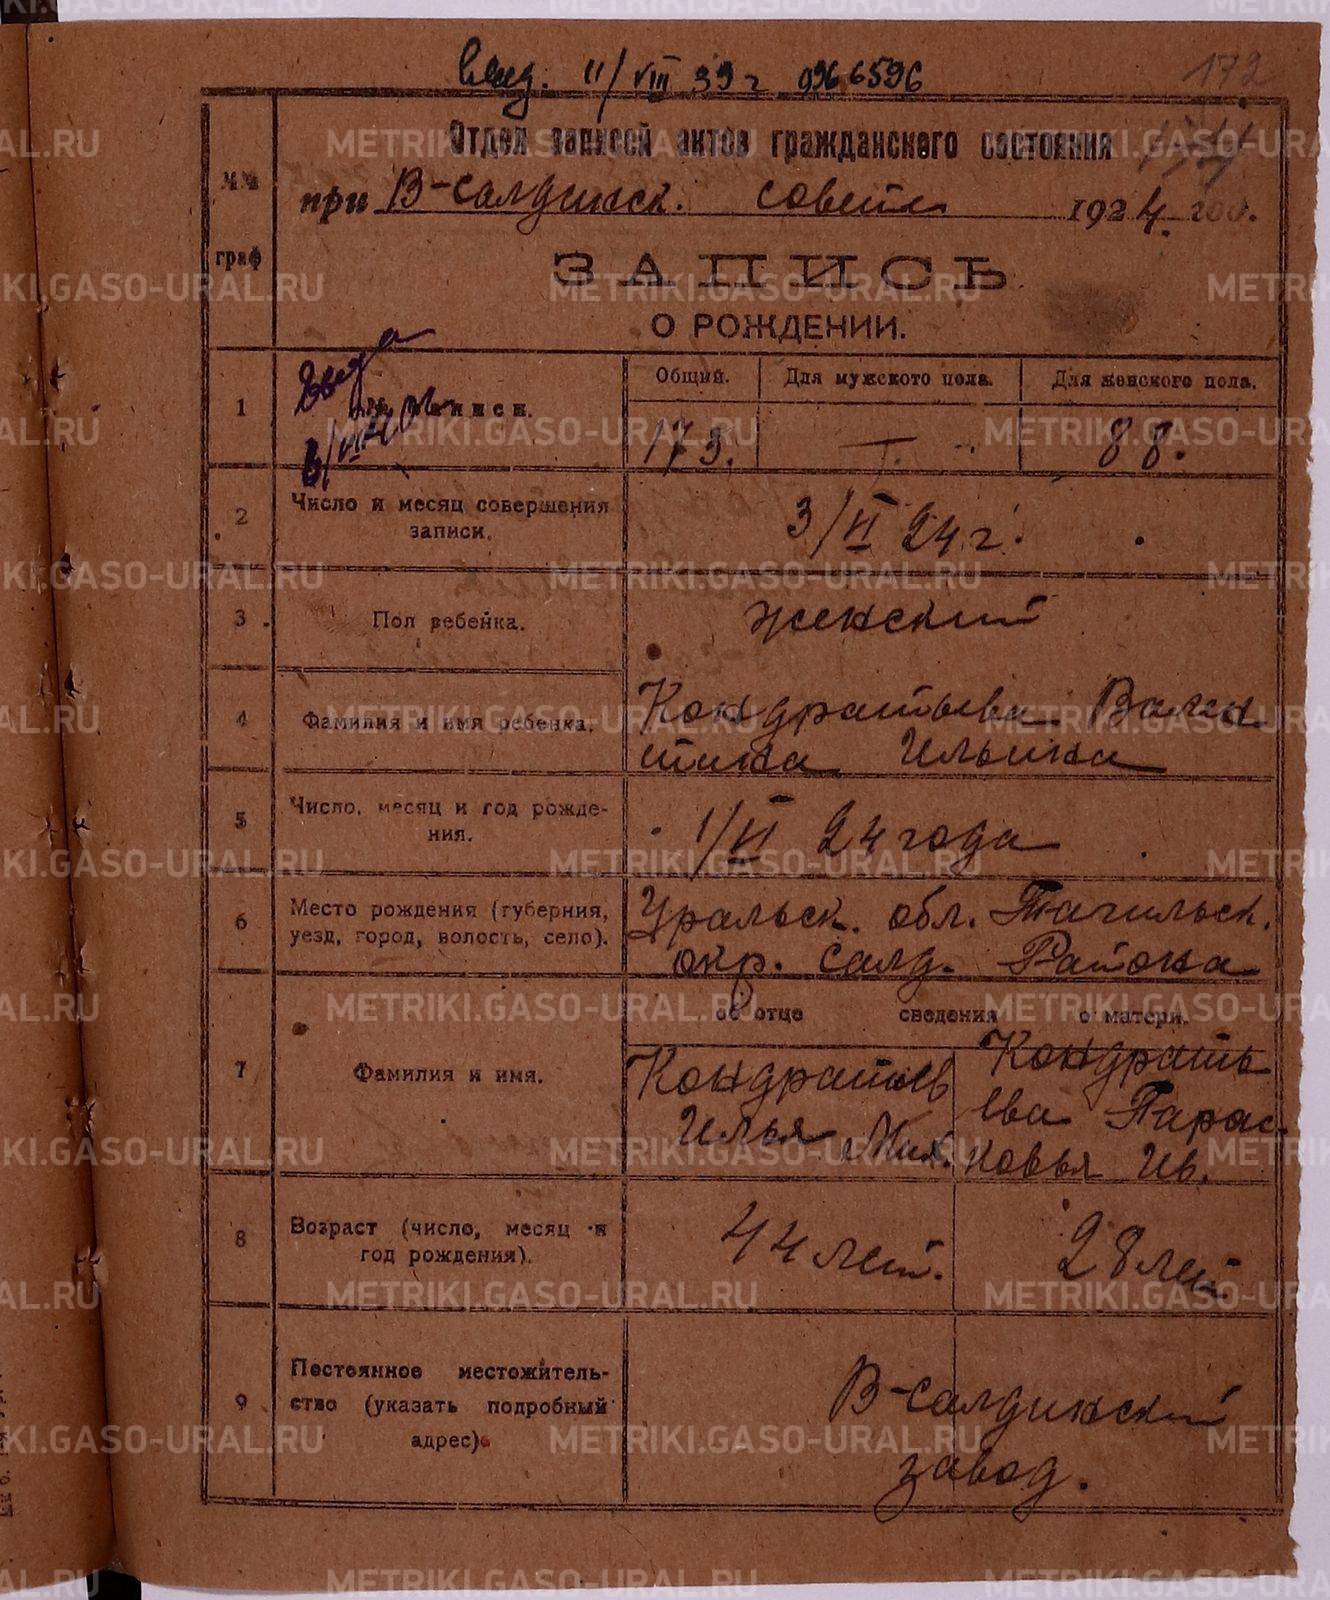 11/VIII 39 г 0966596
172
Отдел записей актов гражданского состояния
при В-салдинск. совете 1924 год.
№№ граф
ЗАПИСЬ
О РОЖДЕНИИ.
1 № записи. Общий. Для мужского пола. Для женского пола.
173. — 88.
2 Число и месяц совершения записи. 3/VI 24 г.
3 Пол ребенка. женский
4 Фамилия и имя ребенка. Кондратьева Вален
тина Ильина
5 Число, месяц и год рожде-
ния. 1/VI 24 года
6 Место рождения (губерния, Уральск. обл. Тагильск.
уезд, город, волость, село). окр. Салд. Района
об отце сведения о матери.
7 Фамилия и имя. Кондратьев Кондрать
Илья Мих. ева Парас-
ковья Ив.
8 Возраст (число, месяц и
год рождения). 44 лет. 28 лет
9 Постоянное местожитель-
ство (указать подробный В-салдинский
адрес). завод.
METRIKI.GASO-URAL.RU